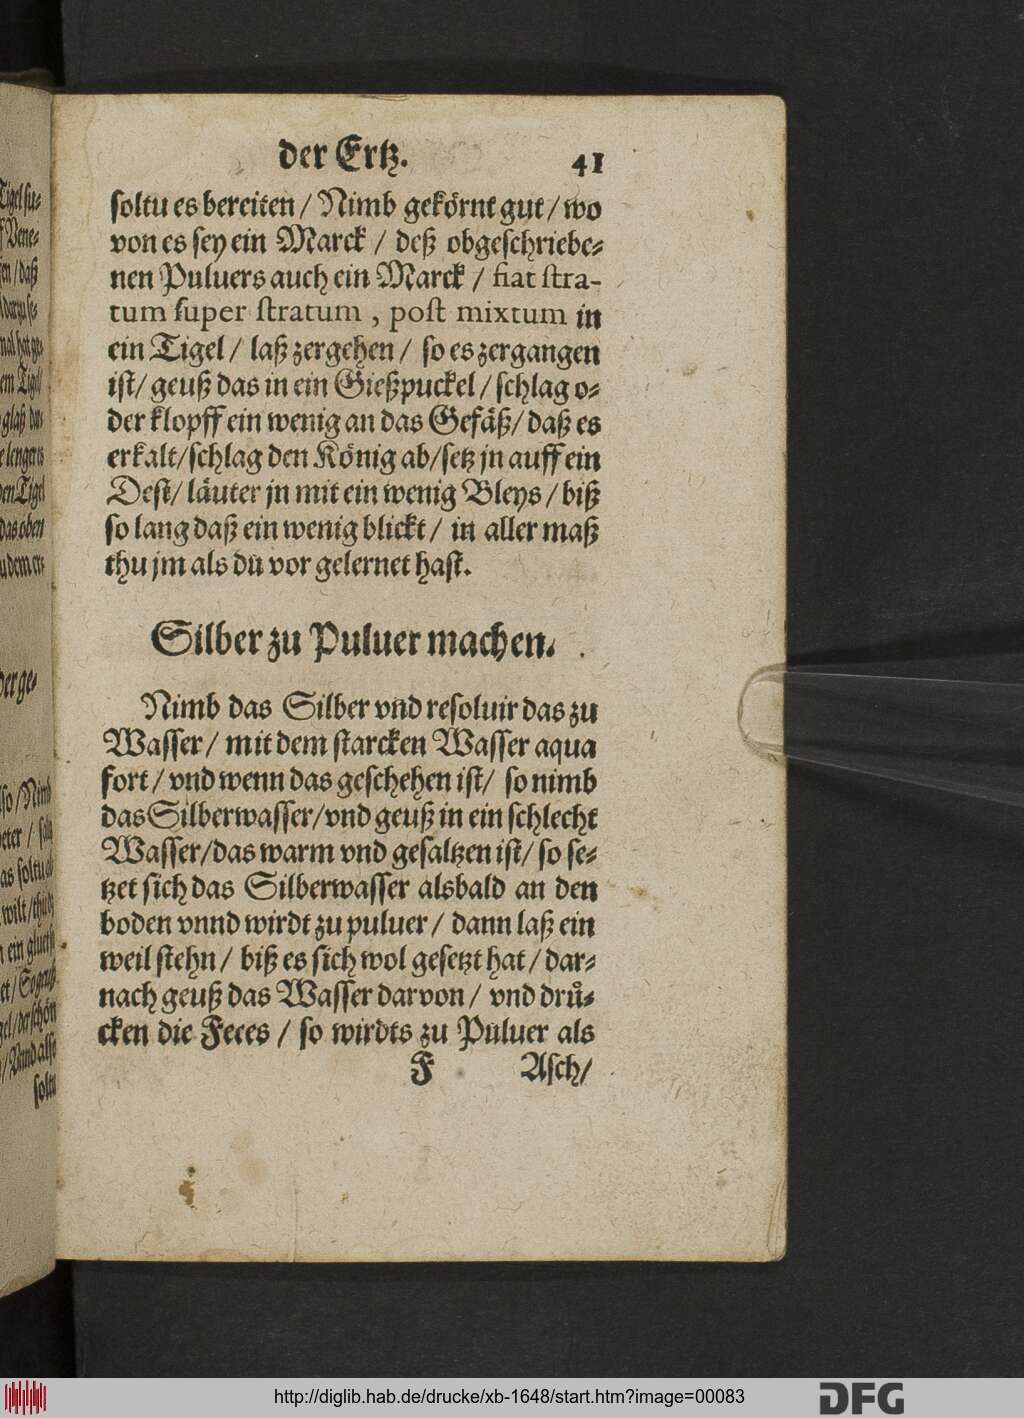 der Ertz. 41
soltu es bereiten / Nimb gekörnt gut / wo
von es sey ein Marck / deß obgeschriebe-
nen Puluers auch ein Marck / fiat stra-
tum super stratum, post mixtum in
ein Tigel / laß zergehen / so es zergangen
ist / geuß das in ein Gießpuckel / schlag o-
der klopff ein wenig an das Gefäß / daß es
erkalt / schlag den König ab / setz jn auff ein
Dest / läuter jn mit ein wenig Bleys / biß
so lang daß ein wenig blickt / in aller maß
thu jm als du vor gelernet hast.
Silber zu Puluer machen.
Nimb das Silber vnd resoluir das zu
Wasser / mit dem starcken Wasser aqua
fort / vnd wenn das geschehen ist / so nimb
das Silberwasser / vnd geuß in ein schlecht
Wasser / das warm vnd gesaltzen ist / so se-
tzet sich das Silberwasser alsbald an den
boden vnnd wirdt zu puluer / dann laß ein
weil stehn / biß es sich wol gesetzt hat / dar-
nach geuß das Wasser darvon / vnd drů-
cken die Feces / so wirdts zu Puluer als
F Asch /
http://diglib.hab.de/drucke/xb-1648/start.htm?image=00083
DFG